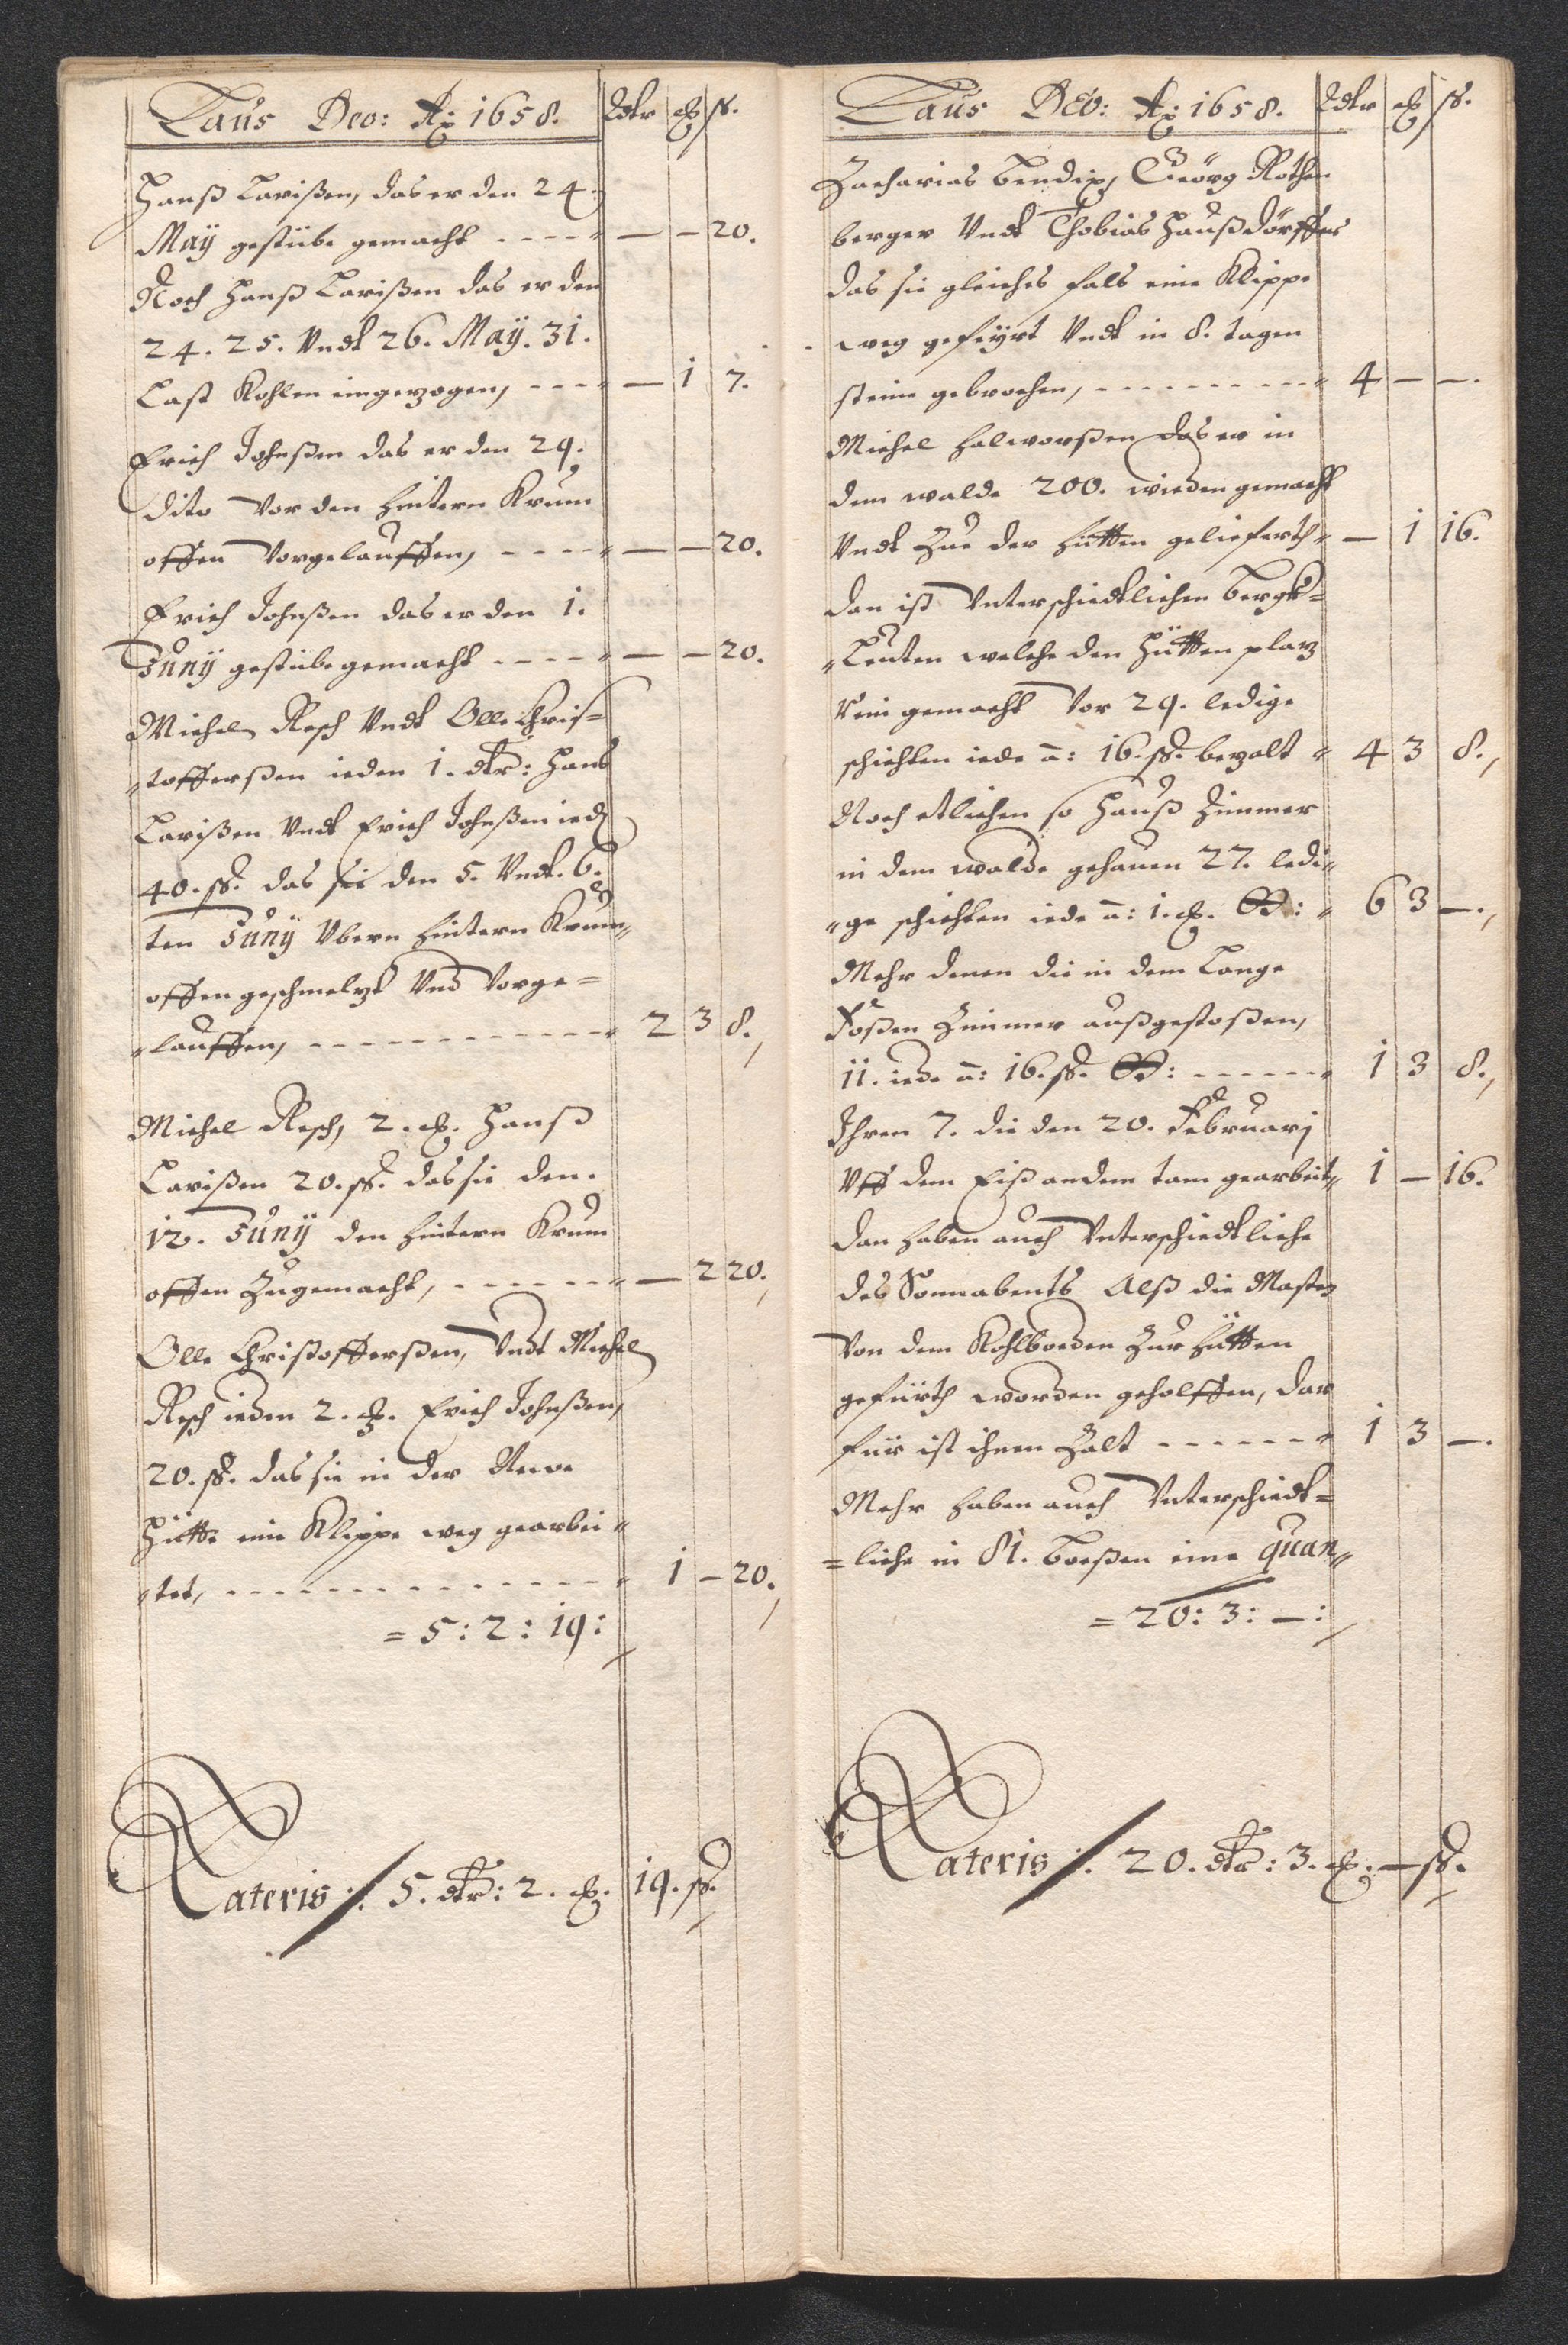 Laus Deo: Aō: 1658. Rdtr ort ß.
Hanß Larißen, das er den 24.
Maÿ gestübe gemacht - - - - — — 20.
Noch Hanß Larißen das er den
24. 25. Vndt 26. Maÿ. 31.
Last Kohlen eingezogen, - - - - — 1 7.
Erich Johnßen das er den 29.
Dito Vor den hintern Krum
offen Vorgelauffen, - - - - — — 20.
Erich Johnßen das er den 1.
Junÿ gestübe gemacht - - - - — — 20.
Michel Resch Vndt Olle Chris=
"tofferßen ieden 1. dtr: Hans
Larißen Vndt Erich Johnßen ied
40. ß. das sie den 5. Vndt. 6.
ten Junÿ Vbern hintern Krum"
offen geschmelzt Vnd Vorge=
"lauffen, - - - - - - - - 2 3 8.
Michel Resch, 2. ort. Hanß
Larißen 20. ß. das sie den.
12. Junÿ den hintern Krum
offen Zugemacht, - - - - - - — 2 20.
Olle Christofferßen, Vndt Michel
Resch ieden 2. ort. Erich Johnßen,
20. ß. das sie in der Newe
Hütte eine Klippe weg gearbei"
"tet, - - - - - - - - - - 1 — 20.
= 5 : 2 : 19 :
Lateris :/: 5. dtr: 2. ort. 19. ß.
Laus DEO: Aō: 1658. Rdtr ort ß.
Zacharias Bendix, Geörg Rothen
berger Vndt Thobias Haußdörffer
das sie gleiches fals eine Klippe
weg gefeÿrt Vndt in 8. tagen
steine gebrochen, - - - - - - - 4 — —.
Michel Halworßen das er in
dem walde 200. wieden gemacht
Vndt Zue der hütten geliefferth" — 1 16.
Dan ist Vnterschiedtlichen Bergk=
"Leuten welche den Hütten plaz
Rein gemacht Vor 29. ledige
schichten iede ā: 16. ß. bezalt " 4 3 8.
Noch etlichen so Hauß Zimmer
in dem walde gehauen 27. ledi"
"ge schichten iede ā: 1. ort. : " 6 3 —.
Mehr denen die in dem Lange
Foßen Zimmer außgestoßen,
11. iede ā: 16. ß. : - - - - - - 1 3 8.
Ihren 7. die den 20. Februarj
Vff dem Eiß an dem tam gearbeit" 1 — 16.
Dan haben auch Vnterschiedtliche
des Sonnabents Alß die Masten
Von dem Kohlborden Zur hütten
geführth worden geholffen, dar
für ist ihnen Zalt - - - - - - 1 3 —.
Mehr haben auch Vnterschiedt=
=liche in 81. Poeßen eine quan"
= 20 : 3 : — :
Lateris :/: 20. dtr: 3. ort. — ß.